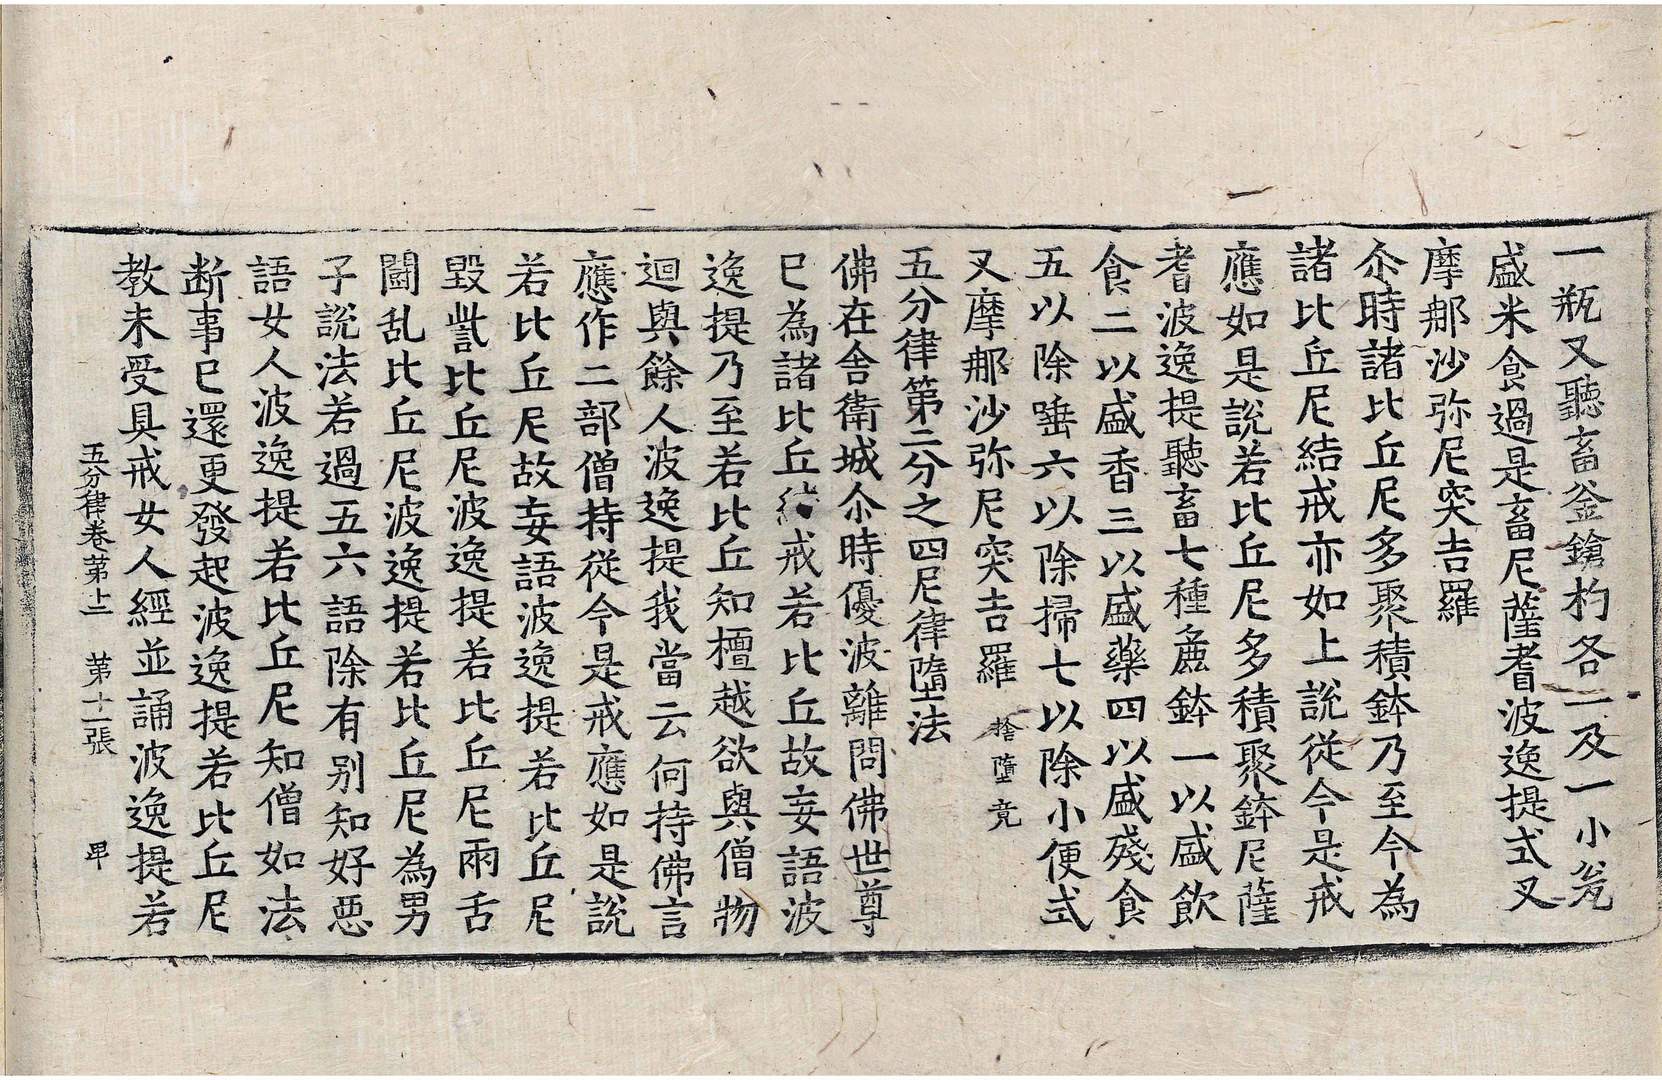 一瓶又聽畜釜鎗杓各一及一小瓮
盛米食過是畜尼薩耆波逸提式叉
摩那沙弥尼突吉羅
尒時諸比丘尼多聚積鉢乃至今為
諸比丘尼結戒亦如上說從今是戒
應如是說若比丘尼多積聚鉢尼薩
耆波逸提聽畜七種麁鉢一以盛飲
食二以盛香三以盛藥四以盛殘食
五以除唾六以除掃七以除小便式
叉摩那沙弥尼突吉羅 捨墮竟
五分律第二分之四尼律墮法
佛在舍衛城尒時優波離問佛世尊
已為諸比丘結戒若比丘故妄語波
逸提乃至若比丘知檀越欲與僧物
迴與餘人波逸提我當云何持佛言
應作二部僧持從今是戒應如是說
若比丘尼故妄語波逸提若比丘尼
毀呰比丘尼波逸提若比丘尼兩舌
鬪乱比丘尼波逸提若比丘尼為男
子說法若過五六語除有別知好惡
語女人波逸提若比丘尼知僧如法
断事已還更發起波逸提若比丘尼
教未受具戒女人經並誦波逸提若
五分律卷第十二 第十一張 甲